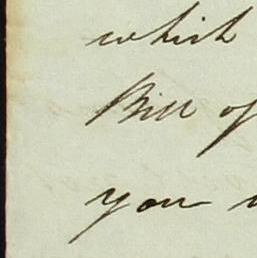 which
Bill of
you